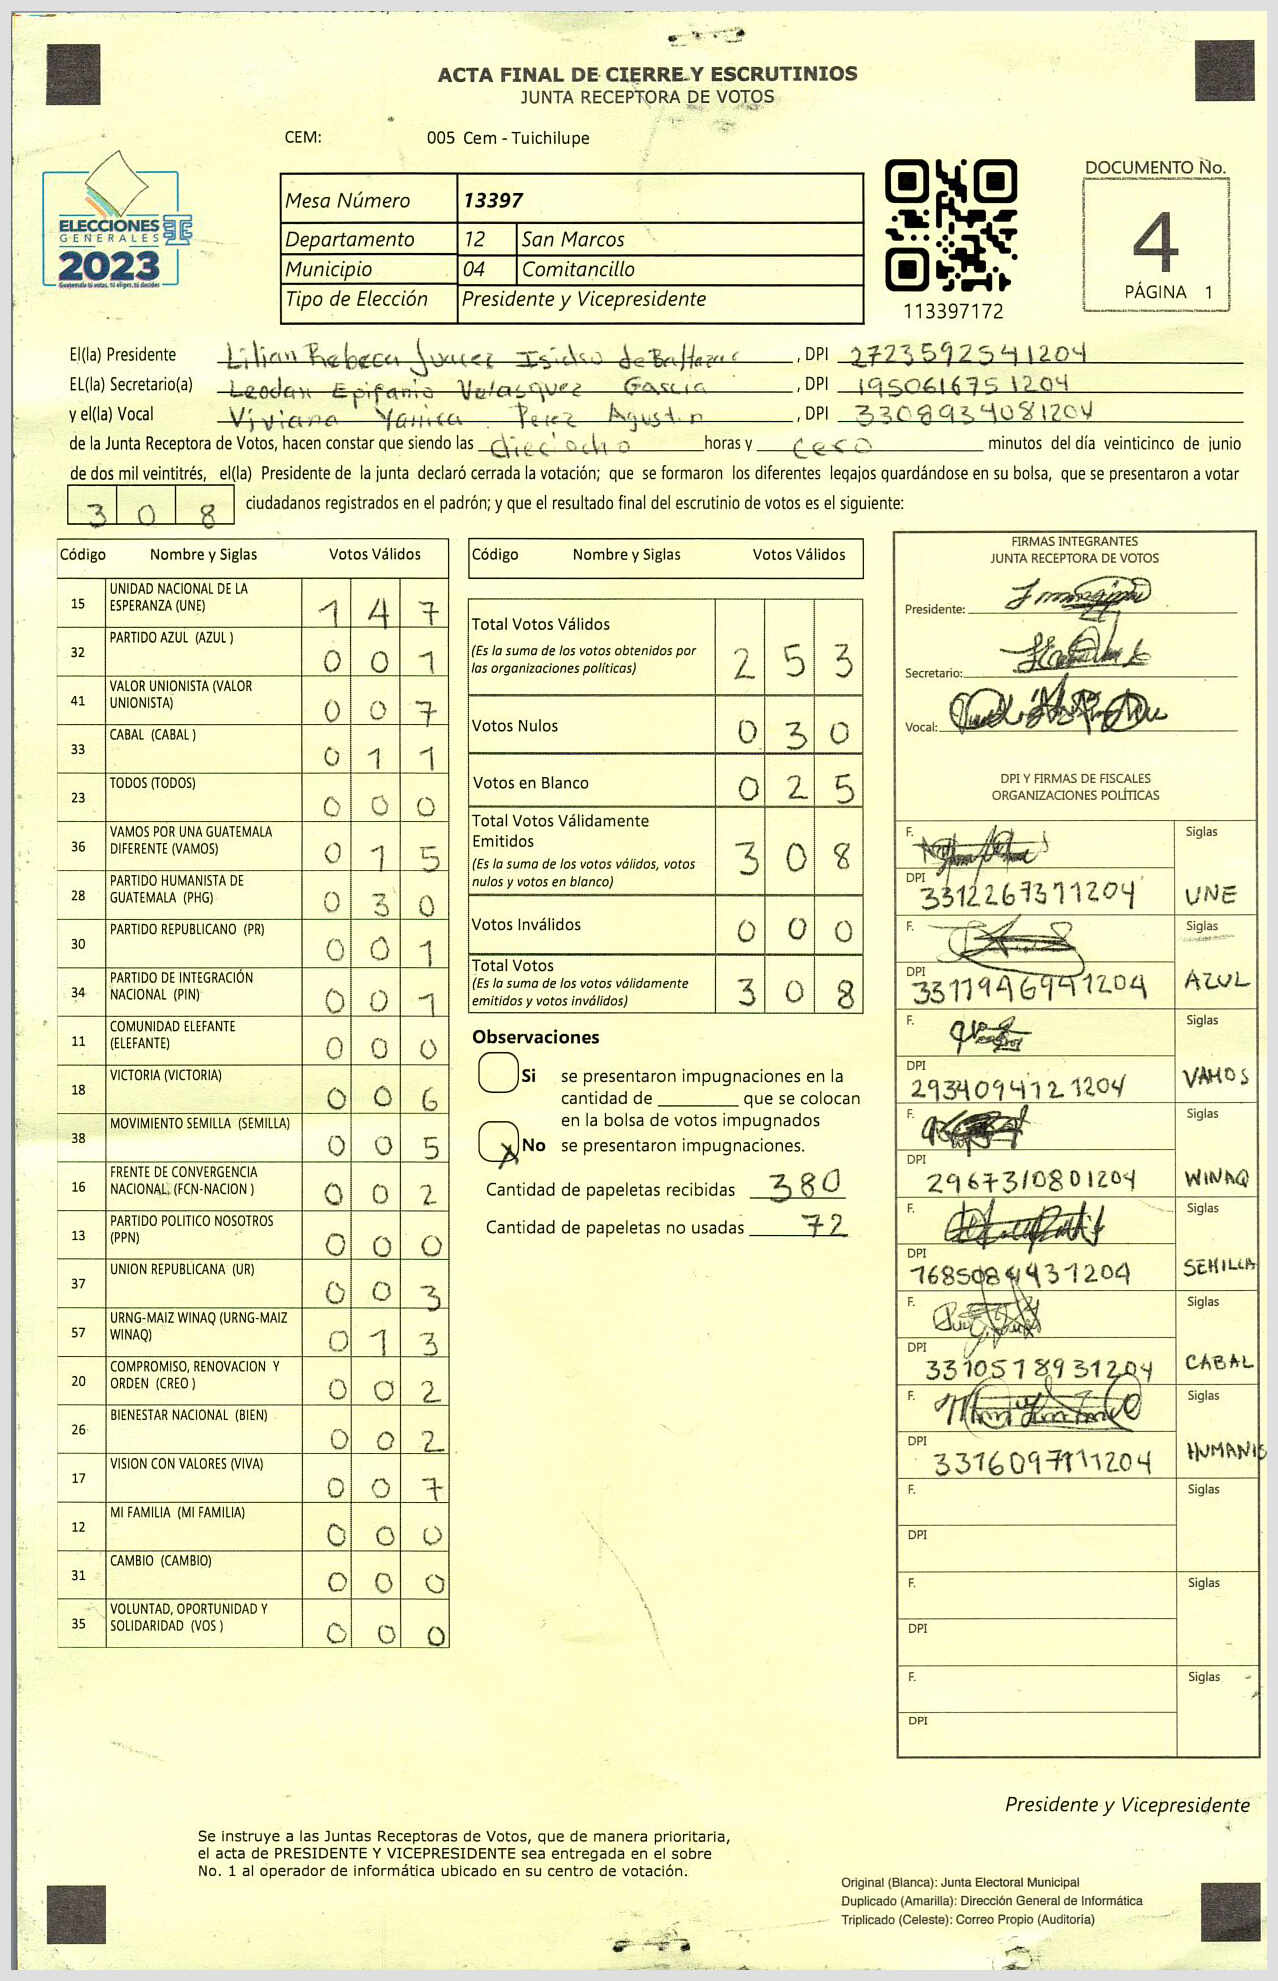 ACTA FINAL DE CIERRE Y ESCRUTINIOS
JUNTA RECEPTORA DE VOTOS
CEM: 005 Cem - Tuichilupe
ELECCIONES
GENERALES
2023
Guatemala tú votas, tú eliges, tú decides
Mesa Número 13397
Departamento 12 San Marcos
Municipio 04 Comitancillo
Tipo de Elección Presidente y Vicepresidente
113397172
DOCUMENTO No.
4
PÁGINA 1
El(la) Presidente Lilian Rebeca Juarez Isidro de Baltazar, DPI 2723592541204
EL(la) Secretario(a) Leodan Epifanio Velasquez Garcia, DPI 195061675 1204
y el(la) Vocal Viviana Yanira Perez Agustin, DPI 3308934081204
de la Junta Receptora de Votos, hacen constar que siendo las dieciocho horas y cero minutos del día veinticinco de junio
de dos mil veintitrés, el(la) Presidente de la junta declaró cerrada la votación; que se formaron los diferentes legajos guardándose en su bolsa, que se presentaron a votar
3 0 8 ciudadanos registrados en el padrón; y que el resultado final del escrutinio de votos es el siguiente:
Código Nombre y Siglas Votos Válidos
15 UNIDAD NACIONAL DE LA ESPERANZA (UNE) 1 4 7
32 PARTIDO AZUL (AZUL ) 0 0 1
41 VALOR UNIONISTA (VALOR UNIONISTA) 0 0 7
33 CABAL (CABAL ) 0 1 1
23 TODOS (TODOS) 0 0 0
36 VAMOS POR UNA GUATEMALA DIFERENTE (VAMOS) 0 1 5
28 PARTIDO HUMANISTA DE GUATEMALA (PHG) 0 3 0
30 PARTIDO REPUBLICANO (PR) 0 0 1
34 PARTIDO DE INTEGRACIÓN NACIONAL (PIN) 0 0 1
11 COMUNIDAD ELEFANTE (ELEFANTE) 0 0 0
18 VICTORIA (VICTORIA) 0 0 6
38 MOVIMIENTO SEMILLA (SEMILLA) 0 0 5
16 FRENTE DE CONVERGENCIA NACIONAL (FCN-NACION ) 0 0 2
13 PARTIDO POLITICO NOSOTROS (PPN) 0 0 0
37 UNION REPUBLICANA (UR) 0 0 3
57 URNG-MAIZ WINAQ (URNG-MAIZ WINAQ) 0 1 3
20 COMPROMISO, RENOVACION Y ORDEN (CREO ) 0 0 2
26 BIENESTAR NACIONAL (BIEN) 0 0 2
17 VISION CON VALORES (VIVA) 0 0 7
12 MI FAMILIA (MI FAMILIA) 0 0 0
31 CAMBIO (CAMBIO) 0 0 0
35 VOLUNTAD, OPORTUNIDAD Y SOLIDARIDAD (VOS ) 0 0 0
Código Nombre y Siglas Votos Válidos
Total Votos Válidos
(Es la suma de los votos obtenidos por
las organizaciones políticas) 2 5 3
Votos Nulos 0 3 0
Votos en Blanco 0 2 5
Total Votos Válidamente
Emitidos
(Es la suma de los votos válidos, votos
nulos y votos en blanco) 3 0 8
Votos Inválidos 0 0 0
Total Votos
(Es la suma de los votos válidamente
emitidos y votos inválidos) 3 0 8
Observaciones
Si se presentaron impugnaciones en la
cantidad de ________ que se colocan
en la bolsa de votos impugnados
X No se presentaron impugnaciones.
Cantidad de papeletas recibidas 380
Cantidad de papeletas no usadas 72
FIRMAS INTEGRANTES
JUNTA RECEPTORA DE VOTOS
Presidente:
Secretario:
Vocal:
DPI Y FIRMAS DE FISCALES
ORGANIZACIONES POLÍTICAS
F. Siglas
DPI 3312267311204 UNE
F. Siglas
DPI 3311946941204 AZUL
F. Siglas
DPI 2934094121204 VAMOS
F. Siglas
DPI 2967310801204 WINAQ
F. Siglas
DPI SEMILLA
F. Siglas
DPI 3310518931204 CABAL
F. Siglas
DPI 3316097111204 HUMANIS
F. Siglas
DPI
F. Siglas
DPI
F. Siglas
DPI
Presidente y Vicepresidente
Se instruye a las Juntas Receptoras de Votos, que de manera prioritaria,
el acta de PRESIDENTE Y VICEPRESIDENTE sea entregada en el sobre
No. 1 al operador de informática ubicado en su centro de votación.
Original (Blanca): Junta Electoral Municipal
Duplicado (Amarilla): Dirección General de Informática
Triplicado (Celeste): Correo Propio (Auditoría)